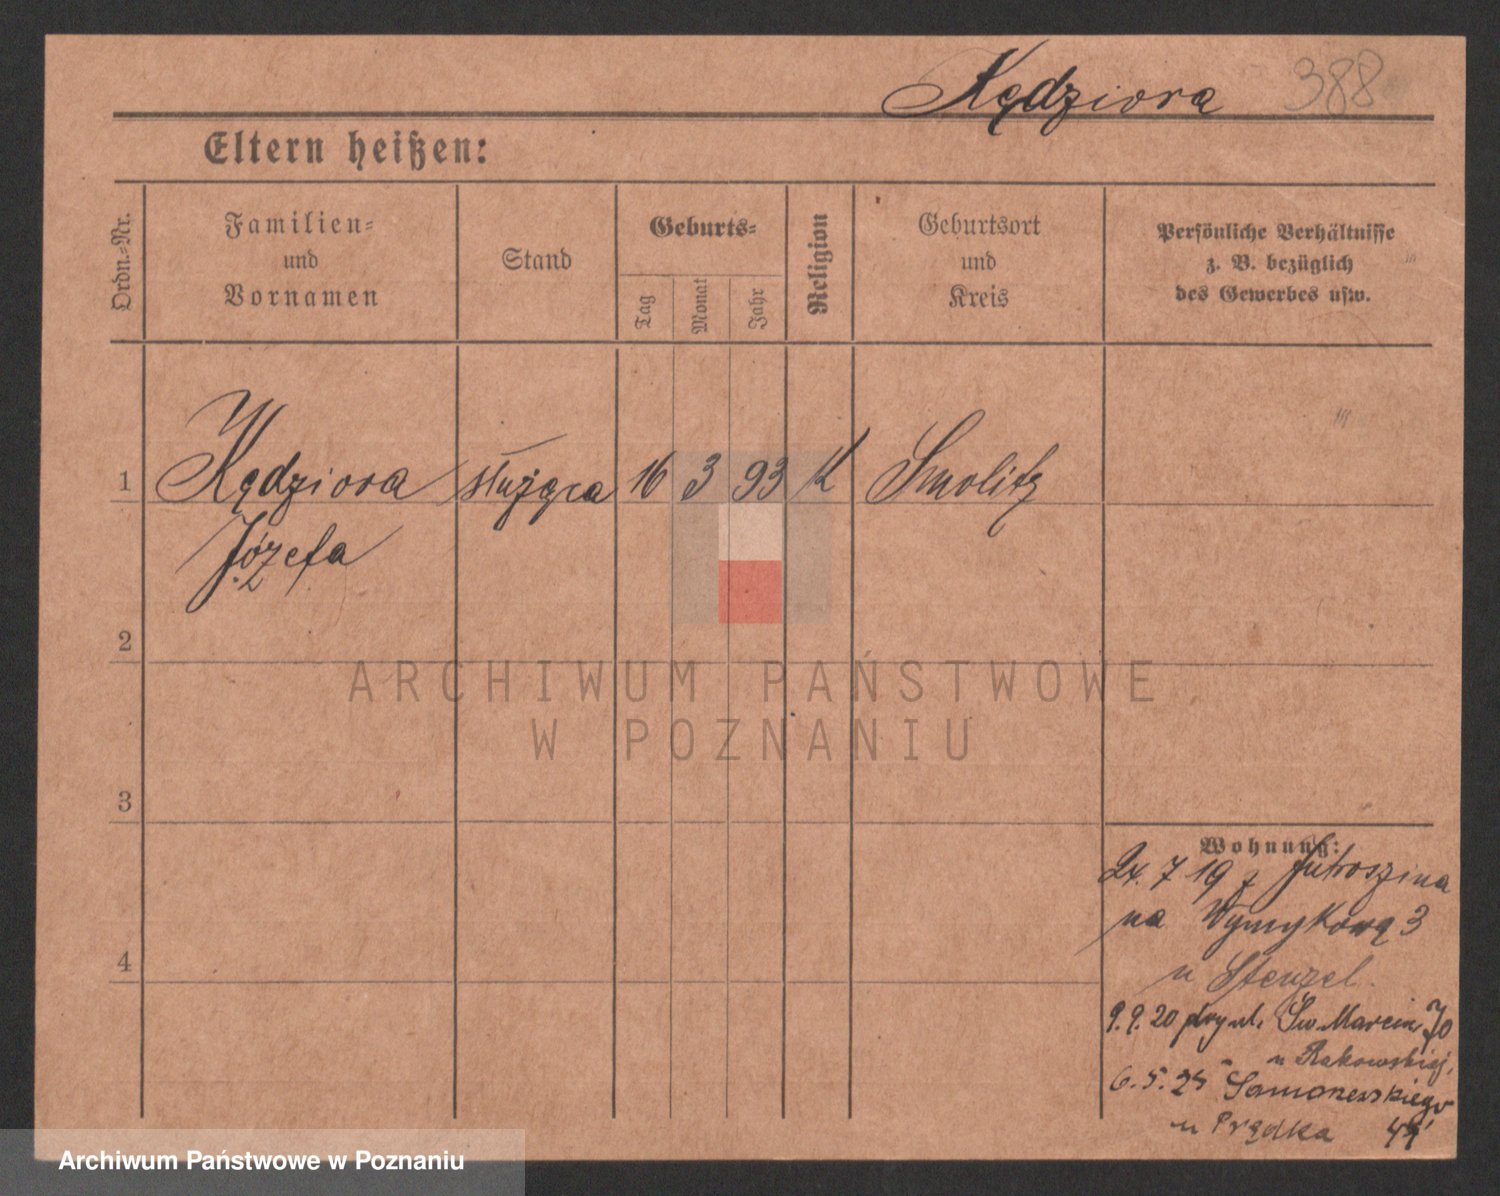 Kędziora 388
Eltern heißen:
Ordn.-Nr.
Familien-
und
Vornamen
Stand
Geburts-
Tag
Monat
Jahr
Religion
Geburtsort
und
Kreis
Persönliche Verhältnisse
z. B. bezüglich
des Gewerbes usw.
1 Kędziora służąca 16 3 93 K Smolitz
Józefa
2
3
4
Wohnung:
24. 7 19 z Jutroszina
na Wymykową 3
u Stenzel.
9.9.20 przy ul. Św Marcin 70
u Rakowskiej,
6.5.25 Samarzewskiego
u Prądka 44
ARCHIWUM PAŃSTWOWE
W POZNANIU
Archiwum Państwowe w Poznaniu